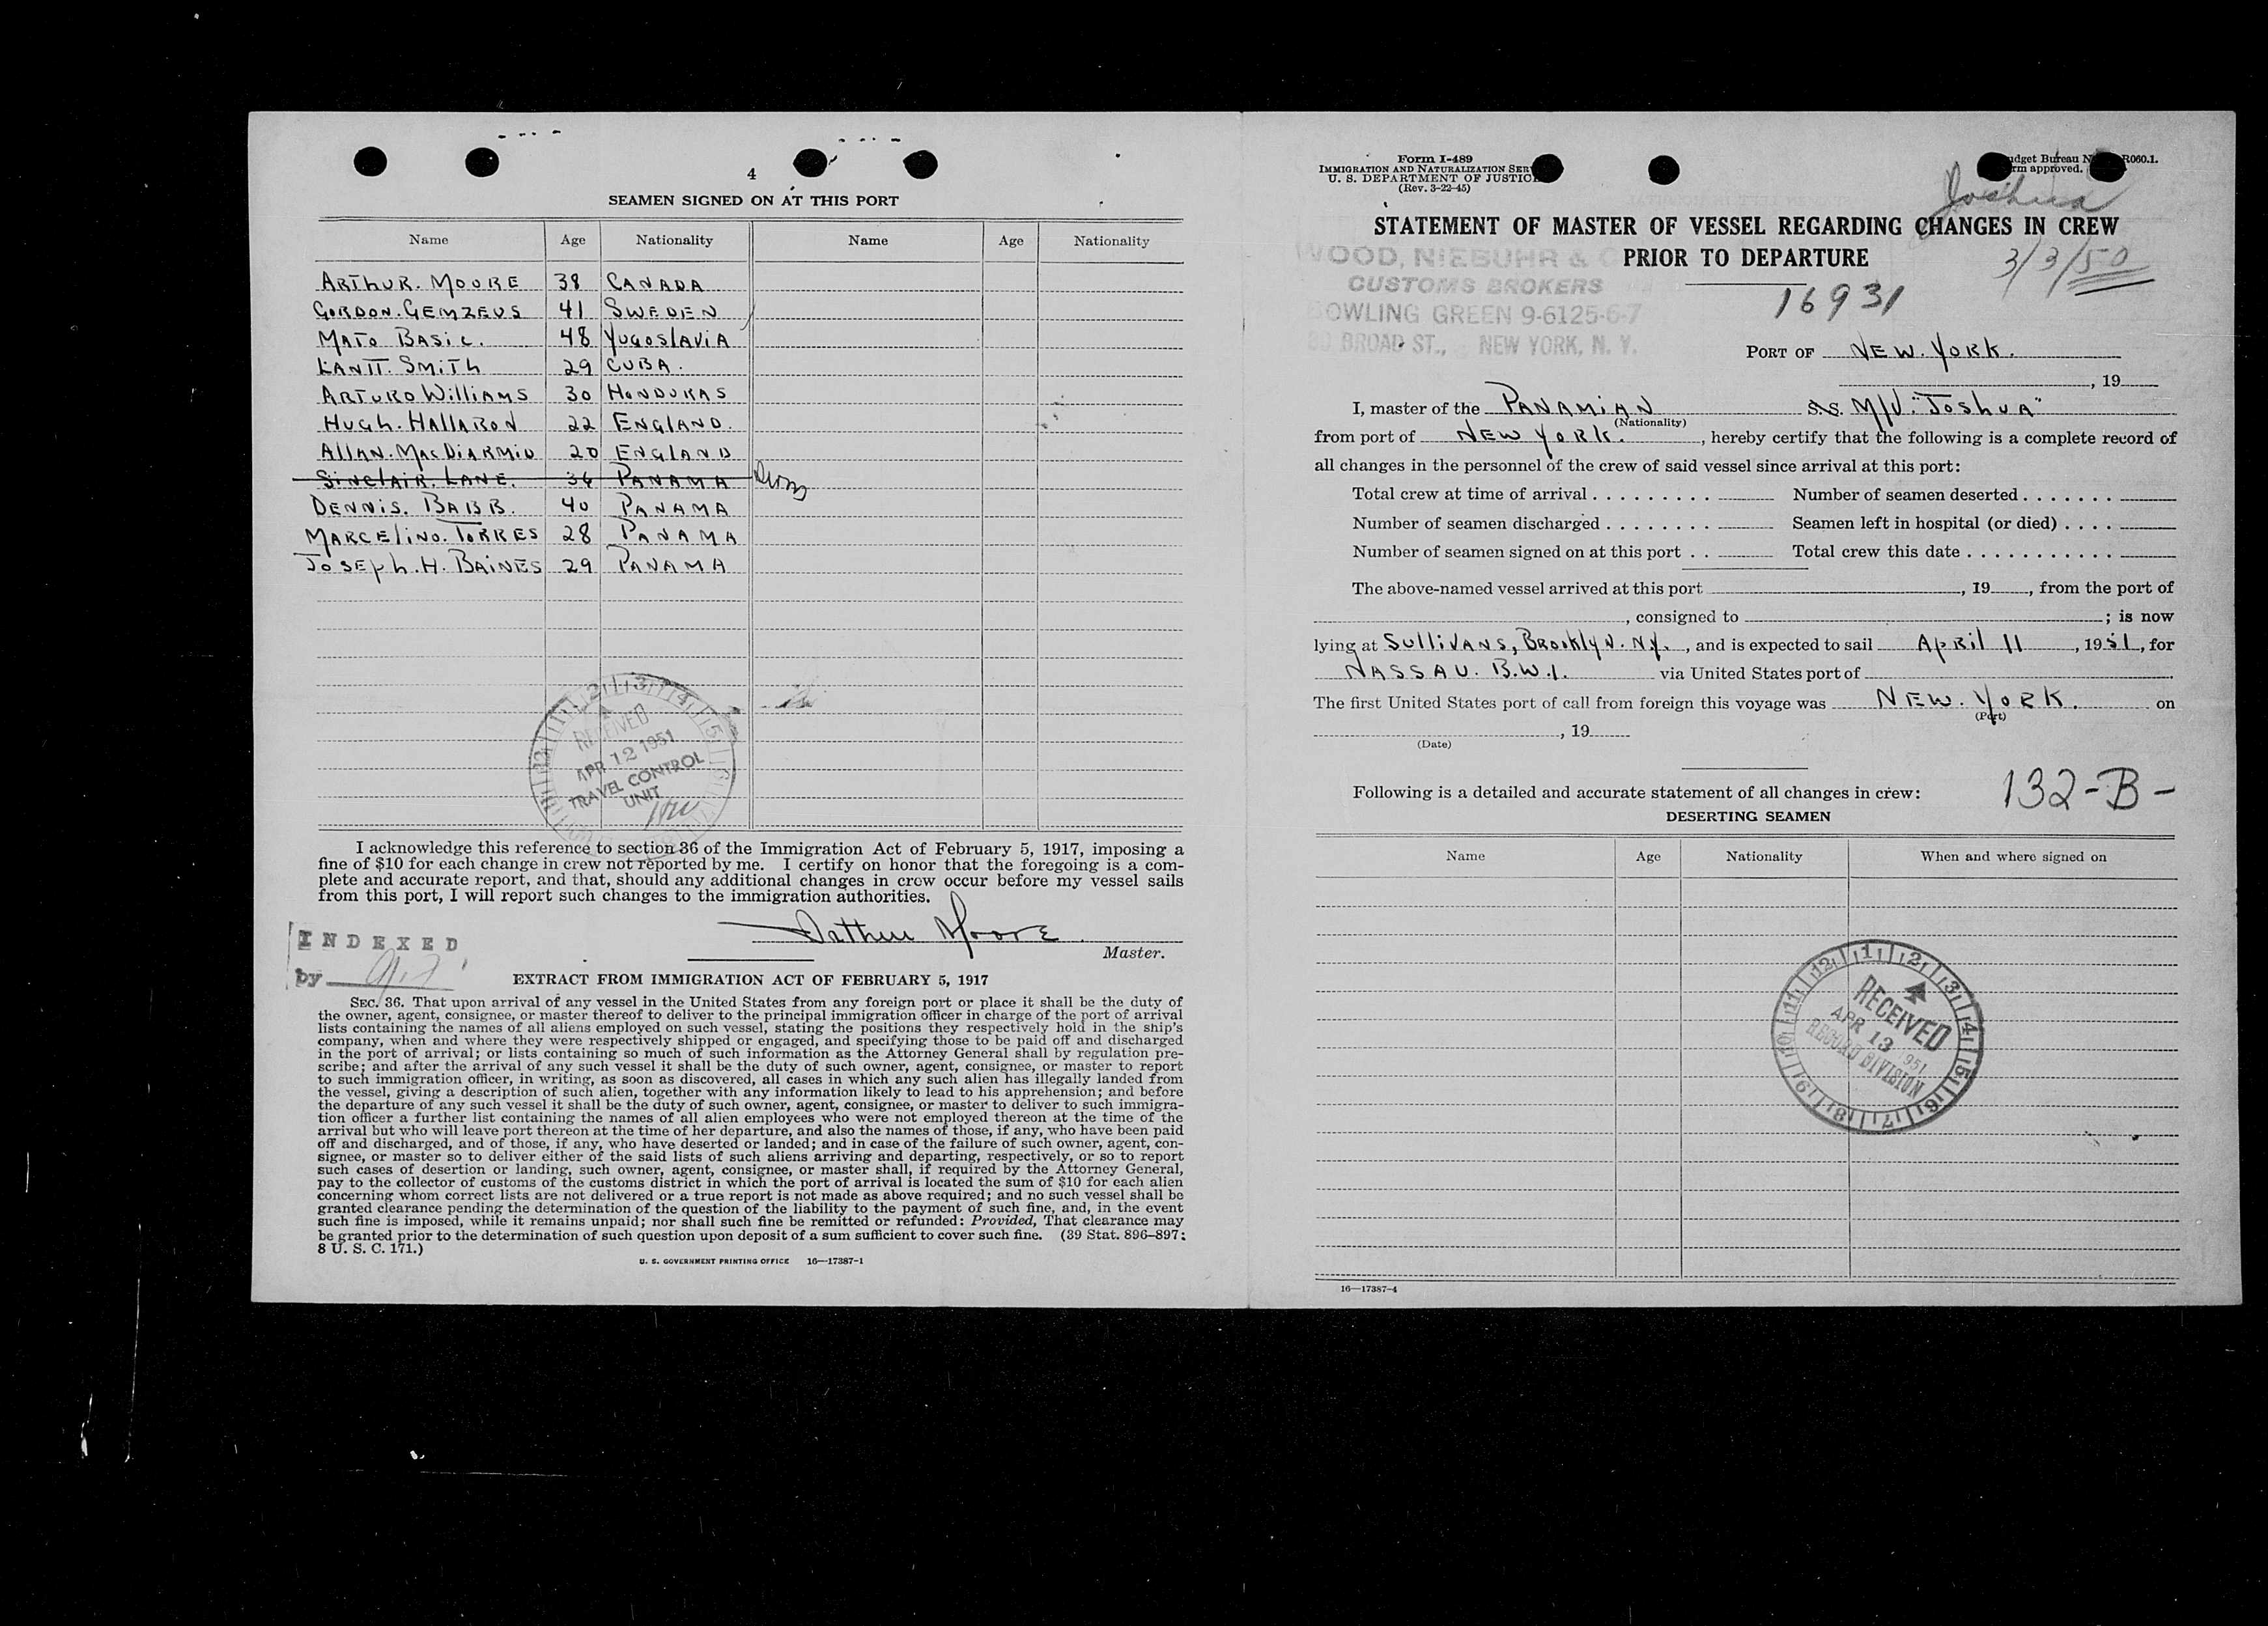 4
SEAMEN SIGNED ON AT THIS PORT
Name Age Nationality Name Age Nationality
ARTHUR. MOORE 38 CANADA
GORDON. GEMZEUS 41 SWEDEN
MATO BASIC. 48 YUGOSLAVIA
SMITH 29 CUBA.
ARTURO WILLIAMS 30 HONDURAS
HUGH. HALLARON 22 ENGLAND.
ALLAN. MACDIARMID 20 ENGLAND
SINCLAIR. LANE. 36 PANAMA
DENNIS. BABB. 40 PANAMA
MARCELINO. TORRES 28 PANAMA
JOSEPH. H. BAINES 29 PANAMA
RECEIVED
APR 12 1951
TRAVEL CONTROL
UNIT
I acknowledge this reference to section 36 of the Immigration Act of February 5, 1917, imposing a
fine of $10 for each change in crew not reported by me. I certify on honor that the foregoing is a com-
plete and accurate report, and that, should any additional changes in crew occur before my vessel sails
from this port, I will report such changes to the immigration authorities.
Arthur Moore
Master.
INDEXED
by
EXTRACT FROM IMMIGRATION ACT OF FEBRUARY 5, 1917
SEC. 36. That upon arrival of any vessel in the United States from any foreign port or place it shall be the duty of
the owner, agent, consignee, or master thereof to deliver to the principal immigration officer in charge of the port of arrival
lists containing the names of all aliens employed on such vessel, stating the positions they respectively hold in the ship's
company, when and where they were respectively shipped or engaged, and specifying those to be paid off and discharged
in the port of arrival; or lists containing so much of such information as the Attorney General shall by regulation pre-
scribe; and after the arrival of any such vessel it shall be the duty of such owner, agent, consignee, or master to report
to such immigration officer, in writing, as soon as discovered, all cases in which any such alien has illegally landed from
the vessel, giving a description of such alien, together with any information likely to lead to his apprehension; and before
the departure of any such vessel it shall be the duty of such owner, agent, consignee, or master to deliver to such immigra-
tion officer a further list containing the names of all alien employees who were not employed thereon at the time of the
arrival but who will leave port thereon at the time of her departure, and also the names of those, if any, who have been paid
off and discharged, and of those, if any, who have deserted or landed; and in case of the failure of such owner, agent, con-
signee, or master so to deliver either of the said lists of such aliens arriving and departing, respectively, or so to report
such cases of desertion or landing, such owner, agent, consignee, or master shall, if required by the Attorney General,
pay to the collector of customs of the customs district in which the port of arrival is located the sum of $10 for each alien
concerning whom correct lists are not delivered or a true report is not made as above required; and no such vessel shall be
granted clearance pending the determination of the question of the liability to the payment of such fine, and, in the event
such fine is imposed, while it remains unpaid; nor shall such fine be remitted or refunded: Provided, That clearance may
be granted prior to the determination of such question upon deposit of a sum sufficient to cover such fine. (39 Stat. 896-897;
8 U. S. C. 171.)
U. S. GOVERNMENT PRINTING OFFICE 16—17387-1
Form I-489
IMMIGRATION AND NATURALIZATION SER
U. S. DEPARTMENT OF JUSTIC
(Rev. 3-22-45)
udget Bureau N R060.1.
rm approved.
Joshua
STATEMENT OF MASTER OF VESSEL REGARDING CHANGES IN CREW
PRIOR TO DEPARTURE
3/3/50
WOOD, NIEBUHR & C
CUSTOMS BROKERS
OWLING GREEN 9-6125-6-7
80 BROAD ST., NEW YORK, N. Y.
16931
PORT OF NEW. YORK.
, 19
I, master of the PANAMIAN S.S. M/V. "JOSHUA"
(Nationality)
from port of NEW YORK. , hereby certify that the following is a complete record of
all changes in the personnel of the crew of said vessel since arrival at this port:
Total crew at time of arrival . . . . . . . . . Number of seamen deserted . . . . . . .
Number of seamen discharged . . . . . . . . Seamen left in hospital (or died) . . . .
Number of seamen signed on at this port . . Total crew this date . . . . . . . . . . .
The above-named vessel arrived at this port , 19 , from the port of
, consigned to ; is now
lying at SULLIVANS, BROOKLYN. N.Y. , and is expected to sail APRIL 11 , 1951, for
NASSAU. B.W.I. via United States port of .
The first United States port of call from foreign this voyage was NEW. YORK. on
(Port)
, 19
(Date)
Following is a detailed and accurate statement of all changes in crew:
132-B-
DESERTING SEAMEN
Name Age Nationality When and where signed on
RECEIVED
APR 13 1951
RECORD DIVISION
16—17387-4